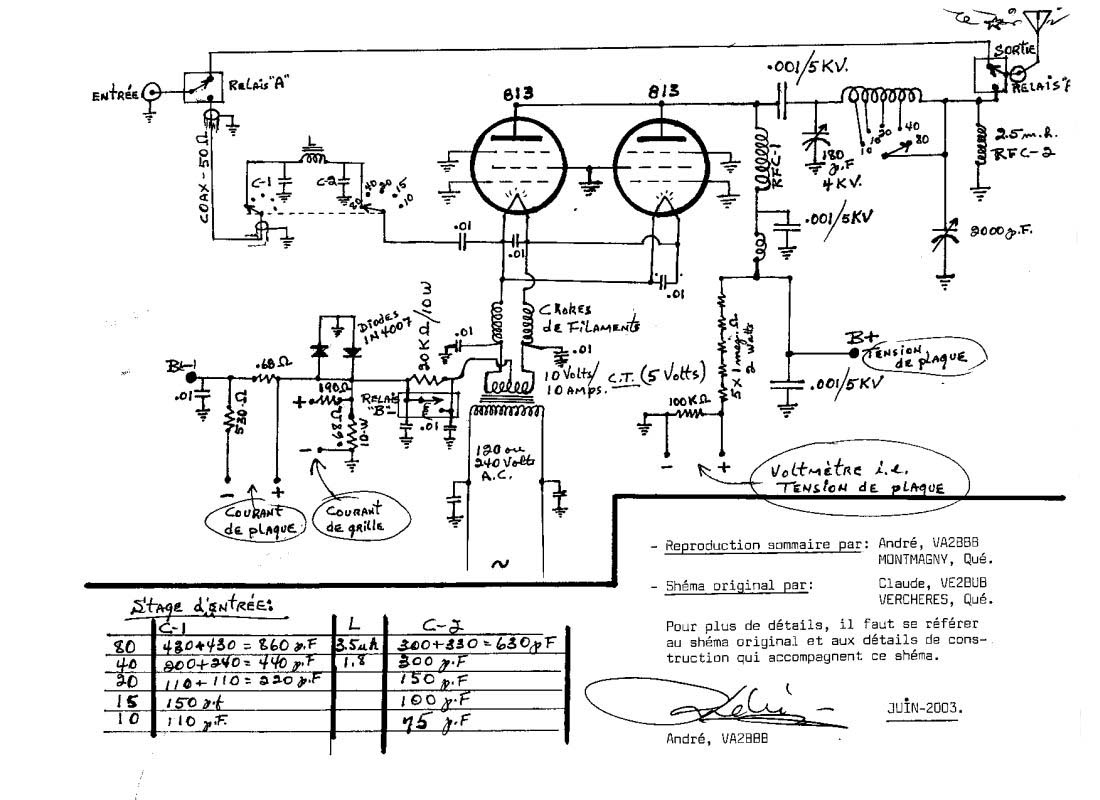 SORTIE
.001/5KV.
RELAIS "A"
ENTRÉE
813
813
RELAIS "A
40
20
15
10
80
2.5 m.h.
RFC-2
180
p.F
4 KV.
RFC-1
L
C-1
C-2
40
20
15
80
10
COAX-50Ω
.001/5KV
2000 p.F.
.01
.01
.01
CHOKES
de FILAMENTS
DIODES
1N4007
20KΩ/10W
.01
.01
B+
TENSION
de plaque
B-1
.68Ω
10 Volts/
10 Amps. C.T. (5 Volts)
5 x 1 meg.Ω
2 watts
.001/5KV
.01
190Ω
+
RELAIS
"B"
100KΩ
530-Ω
.68Ω
10-W
.01
.01
-
120 ou
240 Volts
A.C.
-
+
Voltmètre i.e.
TENSION de plaque
-
+
COURANT
de plaque
COURANT
de grille
~
- Reproduction sommaire par: André, VA2BBB
MONTMAGNY, Qué.
- Shéma original par: Claude, VE2BUB
VERCHERES, Qué.
Pour plus de détails, il faut se référer
au shéma original et aux détails de cons-
truction qui accompagnent ce shéma.
JUIN-2003.
André, VA2BBB
Stage d'ENTRÉE:
C-1 L C-2
80 430+430 = 860 p.F 3.5uh 300+330 = 630 pF
40 200+240 = 440 p.F 1.8 300 p.F
20 110+110 = 220 p.F 150 p.F
15 150 p.f 100 p.F
10 110 p.F. 75 p.F